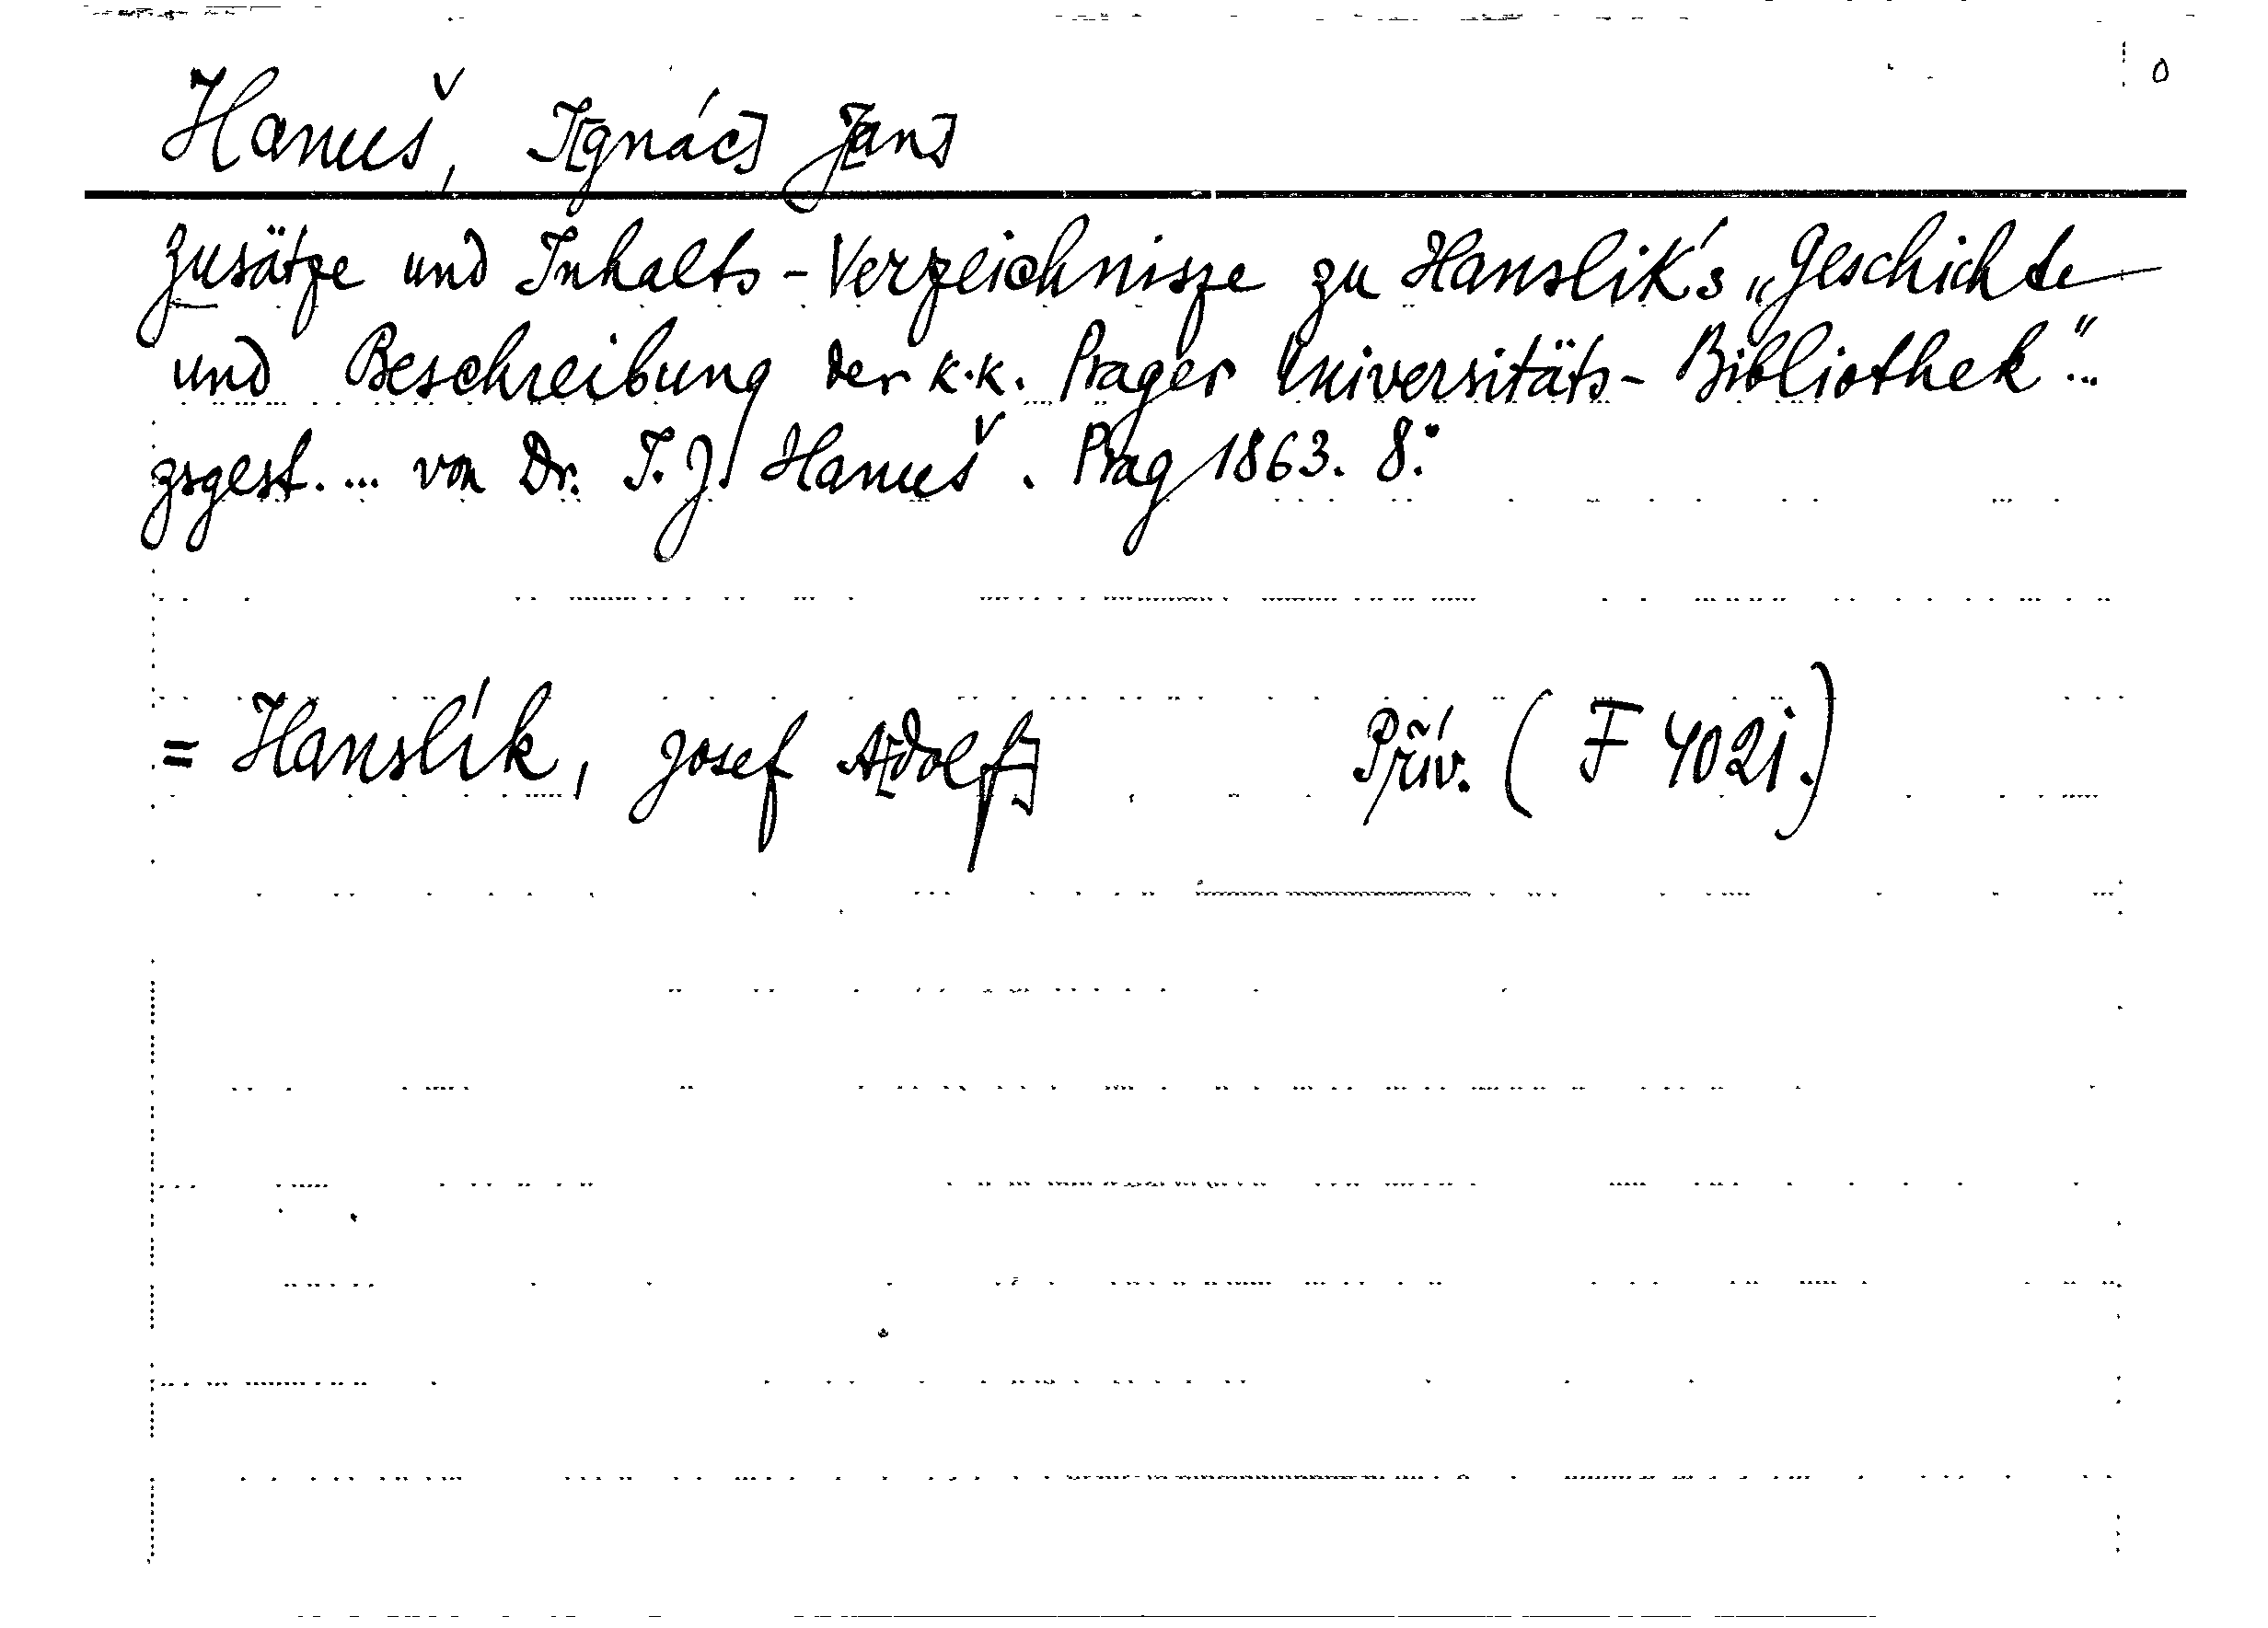 Hanuš, I[gnác] J[an]
Zusätze und Inhalts-Verzeichnisze zu Hanslík's „Geschichte
und Beschreibung der k.k. Prager Universitäts-Bibliothek"...
zsgest. ... von Dr. I. J. Hanuš. Prag 1863. 8.°
= Hanslík, Josef A[dolf] Přív. (F 4021.)